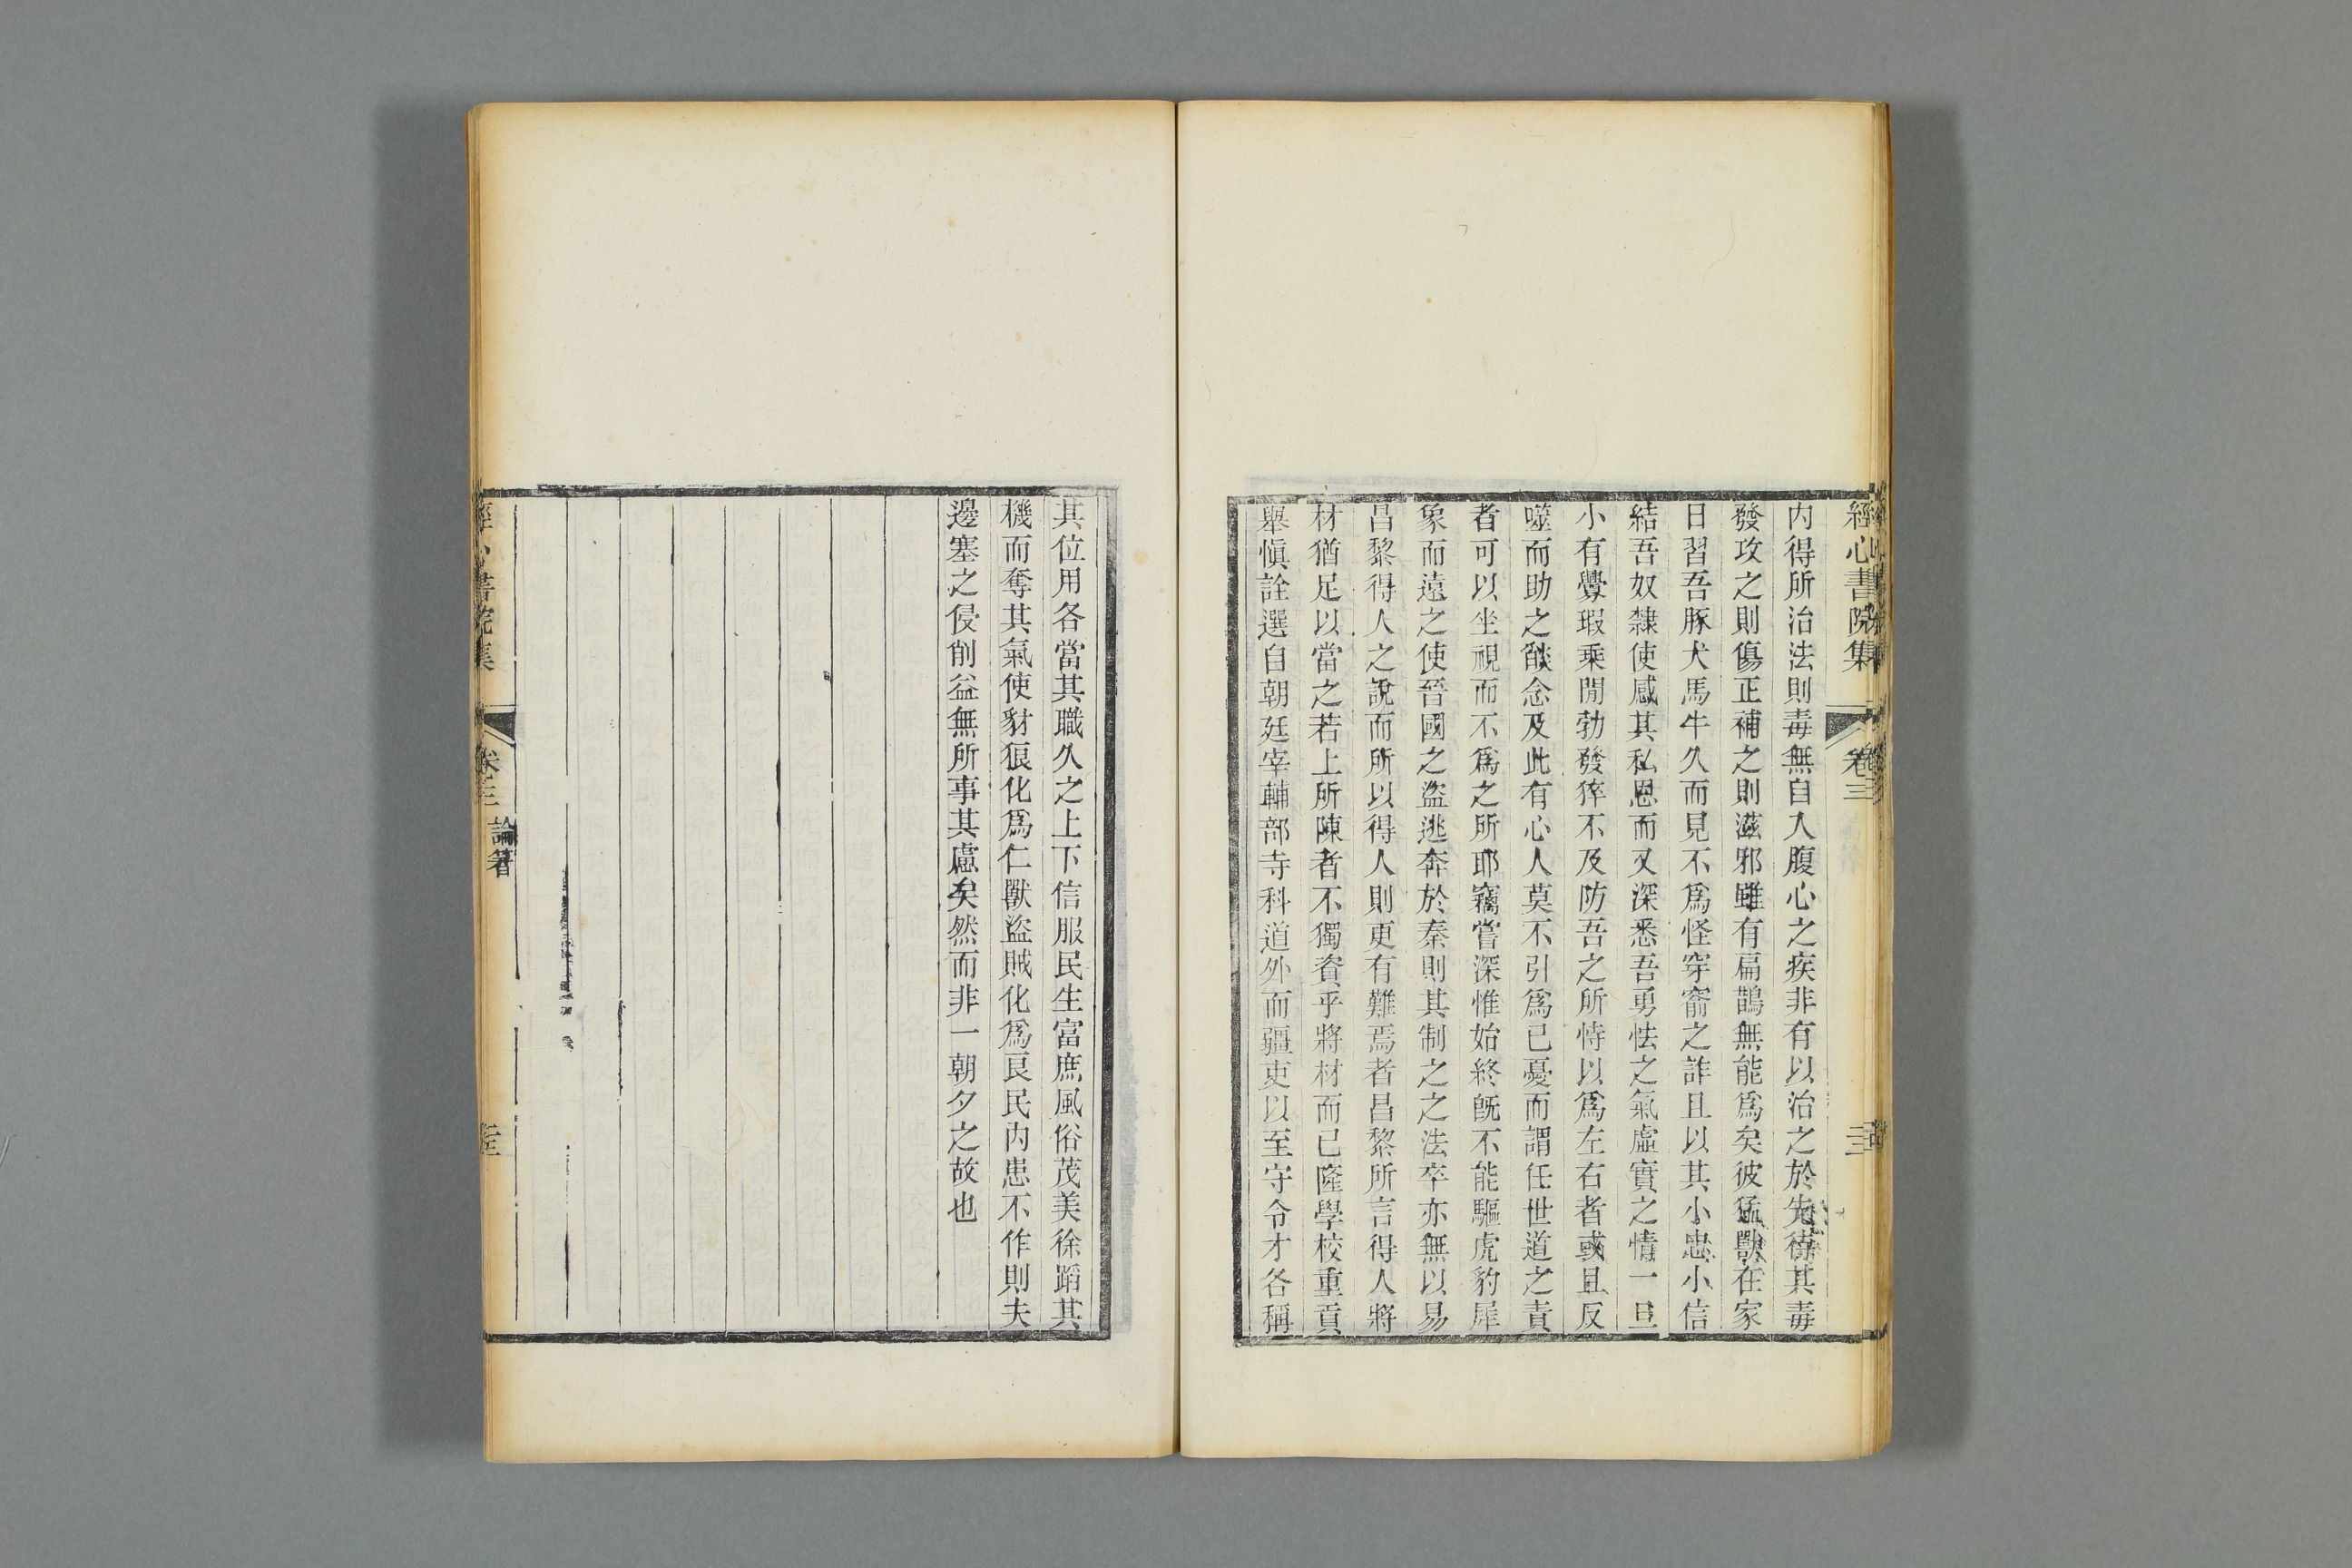 經心書院集
卷三
內得所治法則毒無自入腹心之疾非有以治之於先待其毒
發攻之則傷正補之則滋邪雖有扁鵲無能爲矣彼猛獸在家
日習吾豚犬馬牛久而見不爲怪穿窬之詐且以其小忠小信
結吾奴隸使感其私恩而又深悉吾勇怯之氣虛實之情一旦
小有釁瑕乘閒勃發猝不及防吾之所恃以爲左右者或且反
噬而助之餤念及此有心人莫不引爲已憂而謂任世道之責
者可以坐視而不爲之所耶竊嘗深惟始終旣不能驅虎豹犀
象而遠之使晉國之盜逃奔於秦則其制之之法卒亦無以易
昌黎得人之說而所以得人則更有難焉者昌黎所言得人將
材猶足以當之若上所陳者不獨資乎將材而已隆學校重貢
舉愼詮選自朝廷宰輔部寺科道外而疆吏以至守令才各稱
其位用各當其職久之上下信服民生富庶風俗茂美徐蹈其
機而奪其氣使豺狼化爲仁獸盜賊化爲良民內患不作則夫
邊塞之侵削益無所事其盧矣然而非一朝夕之故也
經心書院集
卷三
論著